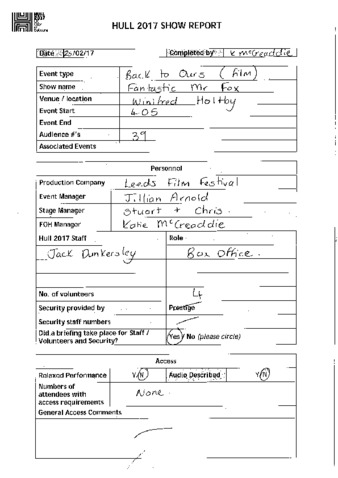 HULL 2017 SHOW REPORT
Date 25/02/17 Completed by K McGreaddie
Event type Back to Ours (film)
Show name Fantastic Mr Fox
Venue / location Winifred Holtby
Event Start 4.05
Event End
Audience #'s 39
Associated Events
Personnel
Production Company Leeds Film Festival
Event Manager Jillian Arnold
Stage Manager Stuart + Chris.
FOH Manager Katie McGreaddie
Hull 2017 Staff Role
Jack Dunkersley Box Office.
No. of volunteers 4
Security provided by Prestige
Security staff numbers
Did a briefing take place for Staff / Yes / No (please circle)
Volunteers and Security?
Access
Relaxed Performance Y/N Audio Described Y/N
Numbers of None.
attendees with
access requirements
General Access Comments